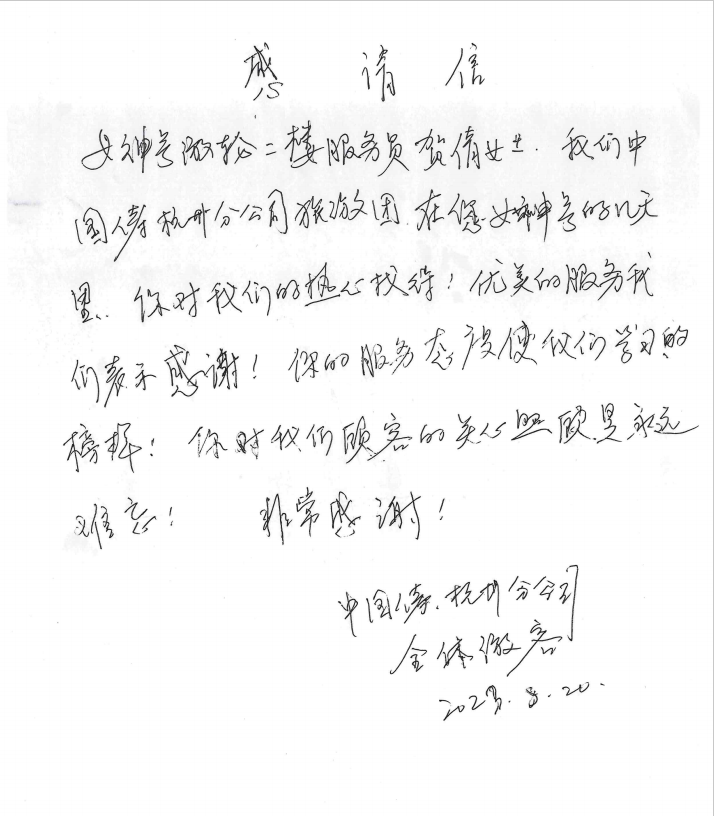 感 请 信
女神号游轮二楼服务员贺倩女士. 我们中
国人寿杭州分公司旅游团.在您女神号的几天
里、你对我们的热心找待！优美的服务我
们表示感谢！你的服务态度使我们学习的
榜样！你对我们顾客的关心照顾是永远
难忘！ 非常感谢！
中国人寿.杭州分公司
全体游客
2023.8.20.